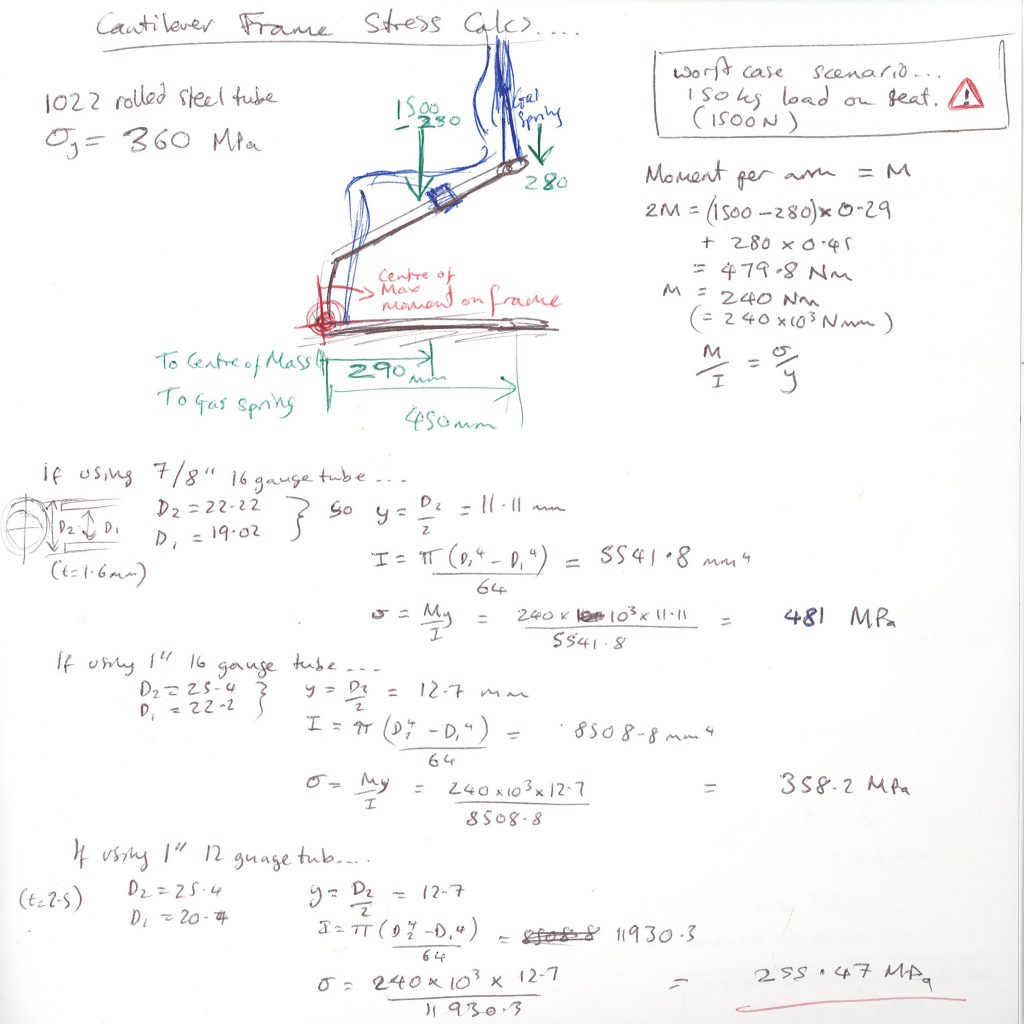 Cantilever Frame Stress Calcs....
1022 rolled steel tube
σy = 360 MPa
worst case scenario...
150kg load on seat.
(1500N)
1500
-280
Gas
Spring
280
Centre of
Max
Moment on frame
To Centre of Mass
290mm
To Gas spring
450mm
Moment per arm = M
2M = (1500-280)×0.29
+ 280 × 0.45
= 479.8 Nm
M = 240 Nm
(= 240×10³ Nmm)
M/I = σ/y
if using 7/8" 16 gauge tube...
D2 D1
(t=1.6mm)
D2 = 22.22
D1 = 19.02
so y = D2/2 = 11.11 mm
I = π(D2⁴ - D1⁴)/64 = 5541.8 mm⁴
σ = My/I = 240 × 10³ × 11.11/5541.8 = 481 MPa
If using 1" 16 gauge tube...
D2 = 25.4
D1 = 22.2
y = D2/2 = 12.7 mm
I = π(D2⁴ - D1⁴)/64 = 8508.8 mm⁴
σ = My/I = 240×10³×12.7/8508.8 = 358.2 MPa
If using 1" 12 guage tub....
(t=2.5)
D2 = 25.4
D1 = 20.4
y = D2/2 = 12.7
I = π(D2⁴ - D1⁴)/64 = 8508.8 11930.3
σ = 240×10³ × 12.7/11930.3 = 255.47 MPa